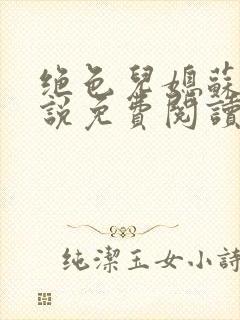 绝色兒媳蘇
說免費閱讀
纯潔玉女小詩